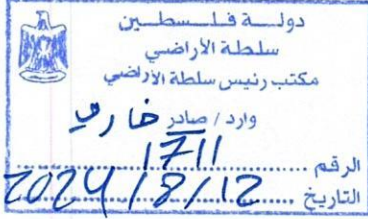 دولـــة فلـــسطـــين
سلطة الأراضي
مكتب رئيس سلطة الأراضي
وارد / صادر خارجي
الرقم ........ 1711 ........
التاريخ ..... 2024/8/12 .....